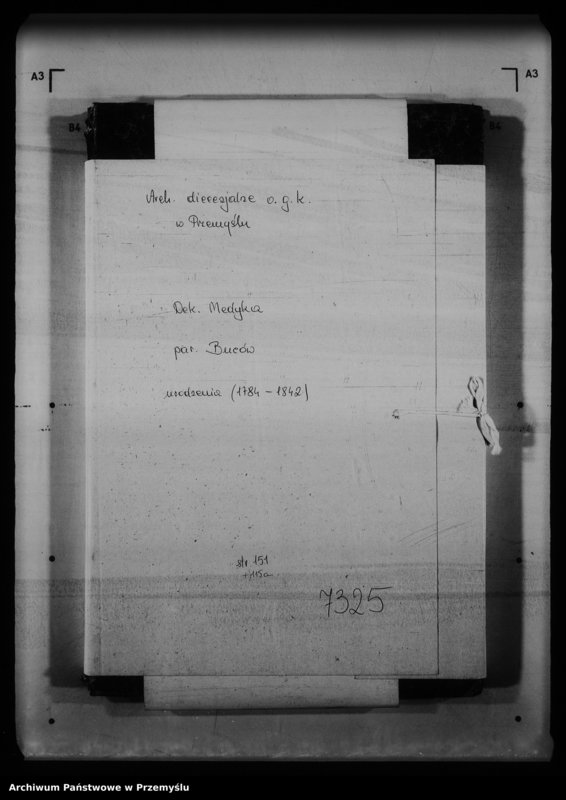 A3
A3
B4
B4
Arch. diecezjalne o. g. k.
w Przemyślu
Dek. Medyka
par. Buców
urodzenia (1784 - 1842)
str. 151
+ 115a
7325
Archiwum Państwowe w Przemyślu